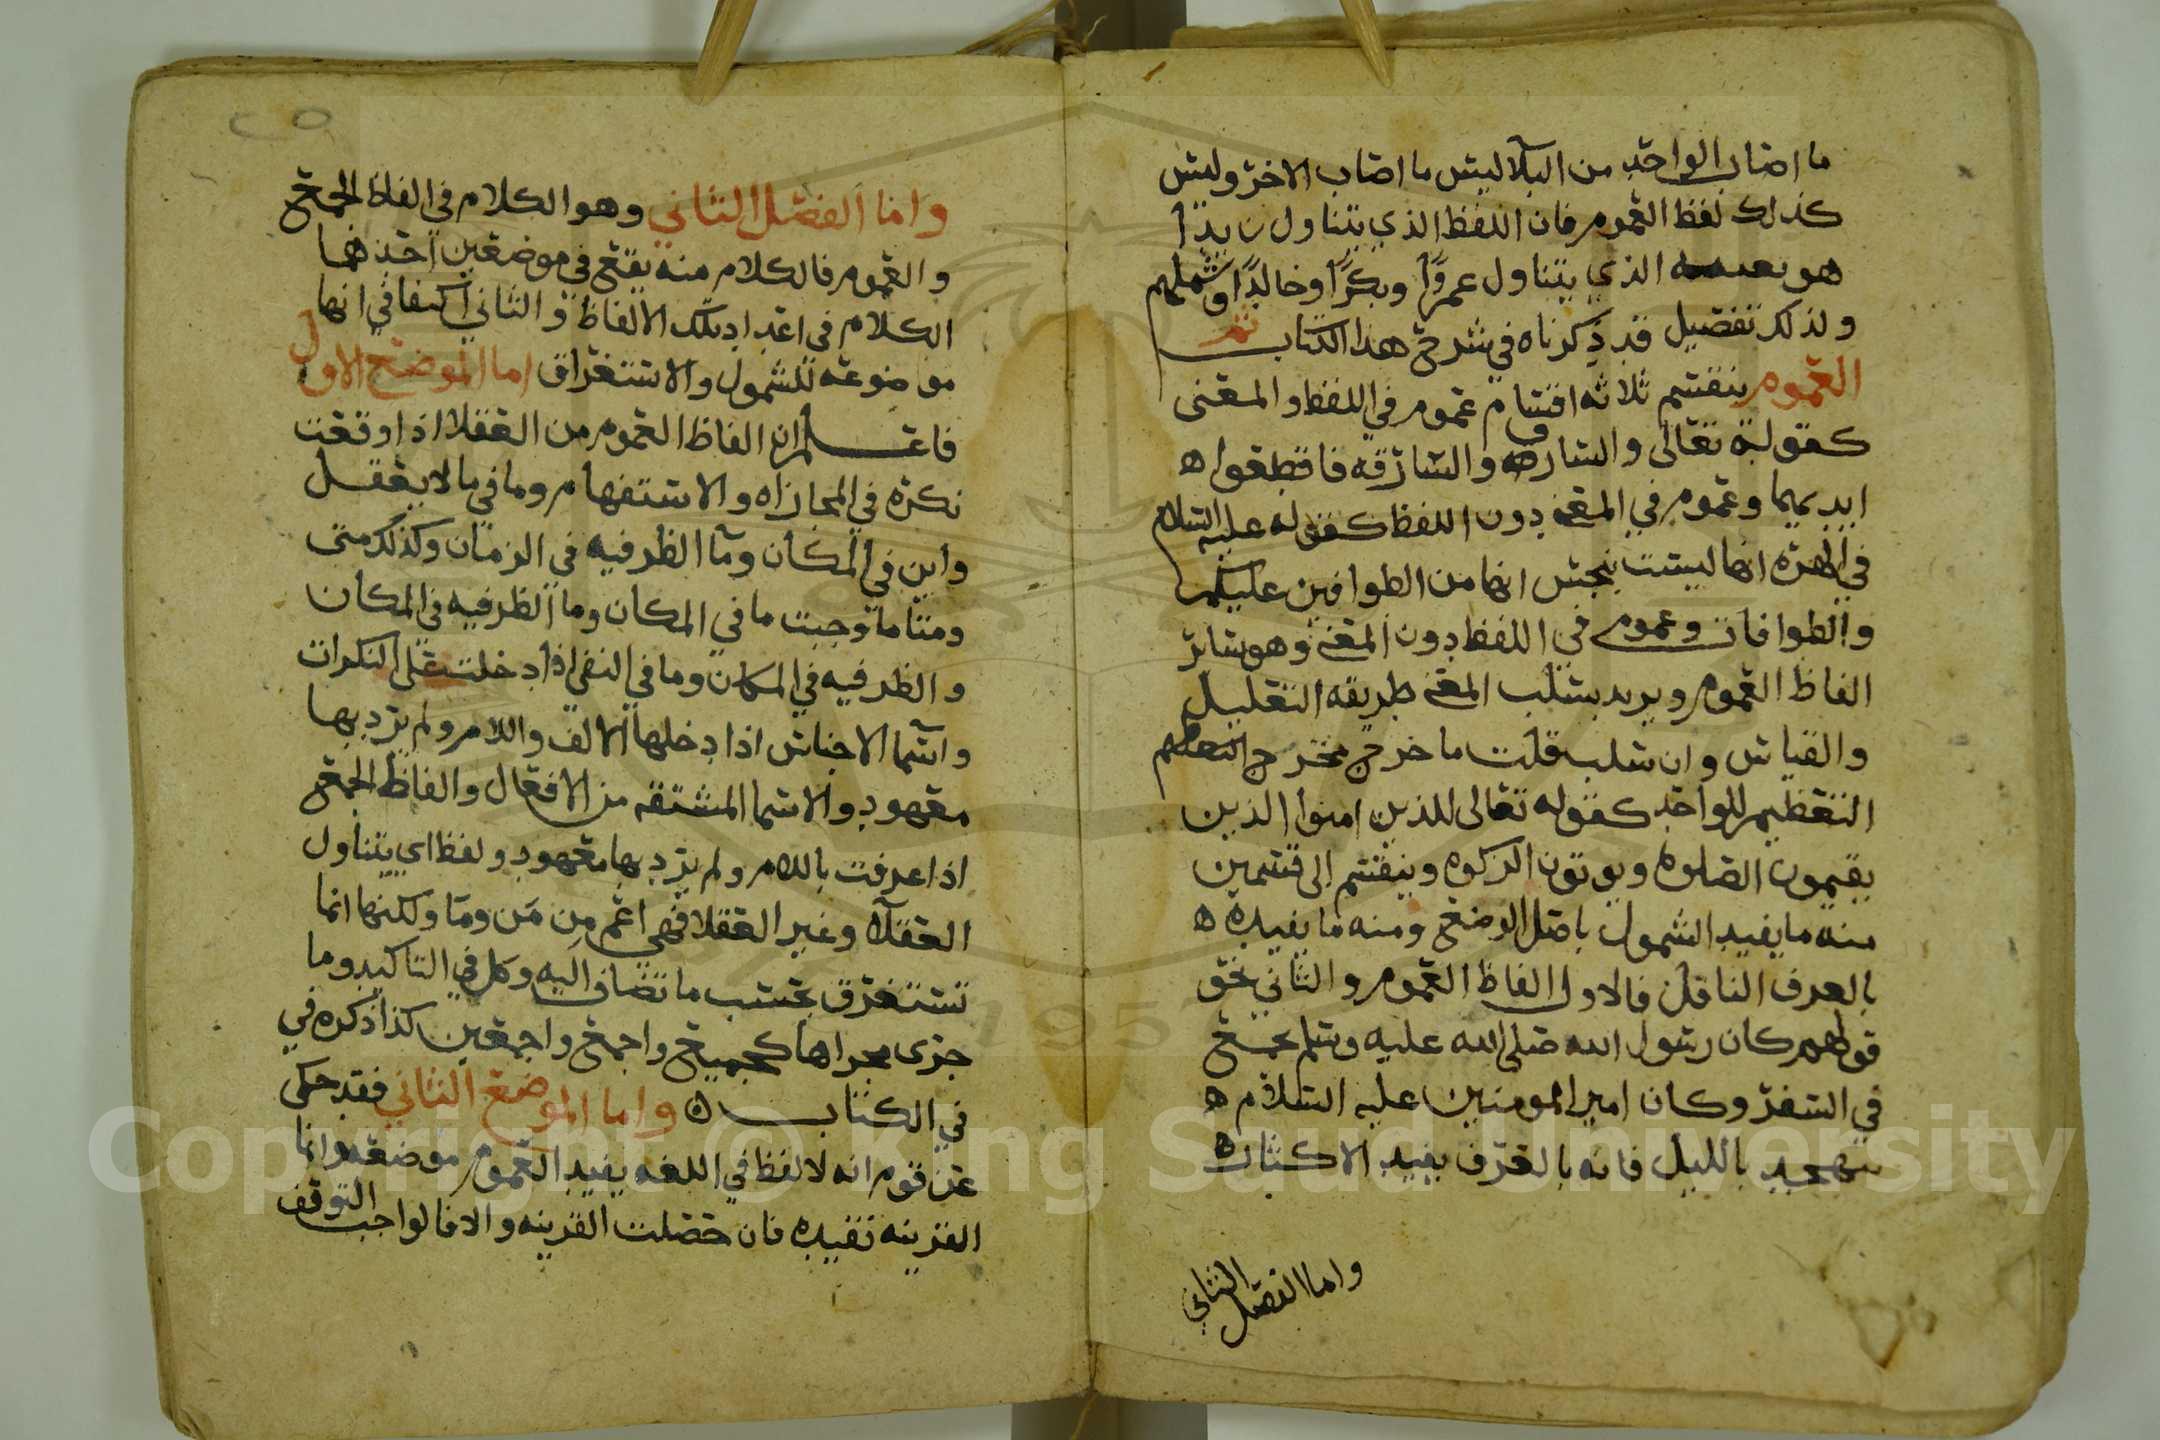 ما اصاب الواحد من البلا ليس ما اصاب الاخر وليس
كذلك لفظ العموم فان اللفظ الذي يتناول زيدًا
هو بعينه الذي يتناول عمروًا وبكرًا وخالدًا وشملهم
ولذلك تفصيل قد ذكرناه في شرح هذا الكتاب ثم
العموم ينقسم ثلاثه اقسام عموم في اللفظ والمعنى
كقوله تعالى والسارق والسارقه فاقطعوا ه
ايديهما وعموم في المعنى دون اللفظ كقوله عليه السلام
في الهره انها ليست بنجس انها من الطوافين عليكم
والطوافات وعموم في اللفظ دون المعنى وهو سائر
الفاظ العموم ويريد بسلب المعنى طريقه التعليل
والقياس وان سلب قلت ما خرج مخرج
التعظيم للواحد كقوله تعالى للذين امنوا الذين
يقيمون الصلوه ويوتون الزكوه وينقسم الى قسمين
منه ما يفيد الشمول باصل الوضع ومنه ما يفيده ه
بالعرف الناقل فالاول الفاظ العموم والثاني نحو
قولهم كان رسول الله صلى الله عليه وسلم يجمع
في السفر وكان امير المومنين عليه السلام ه
يتهجد بالليل فانه بالعرف يفيد الاكثار ه
واما الفصل الثاني
٢٥
واما الفصل الثاني وهو الكلام في الفاظ الجمع
والعموم فالكلام منه يقع في موضعين احدهما
الكلام في اعداد تلك الالفاظ والثاني في انها
موضوعه للشمول والاستغراق اما الموضع الاول
فاعلم ان الفاظ العموم من العقلا اذا وقعت
نكره في المجازاه والاستفهام وما في ما لا يعقل
واين في المكان وما الظرفيه في الزمان وكذلك متى
ومتا ما وحيث ما في المكان وما الظرفيه في المكان
والظرفيه في المكان وما في النفي اذا دخلت على النكرات
واسما الاجناس اذا دخلها الالف واللام ولم يرد بها
معهود والاسما المشتقه من الافعال والفاظ الجمع
اذا عرفت باللام ولم يرد بها معهود ولفظ اي يتناول
العقلاء وغير العقلا فهي اعم من مَن وما ولكنها انما
تستغرق بحسب ما تضاف اليه وكل في التاكيد وما
جرى مجراها كجميع واجمع واجمعين كذا ذكره في
في الكتاب ه واما الموضع الثاني فقد حكى
عن قوم انه لا لفظ في اللغه يفيد العموم موضعه وانما
القرينه تفيده فان حصلت القرينه والا فالواجب التوقف
Copyright © King Saud University
1957